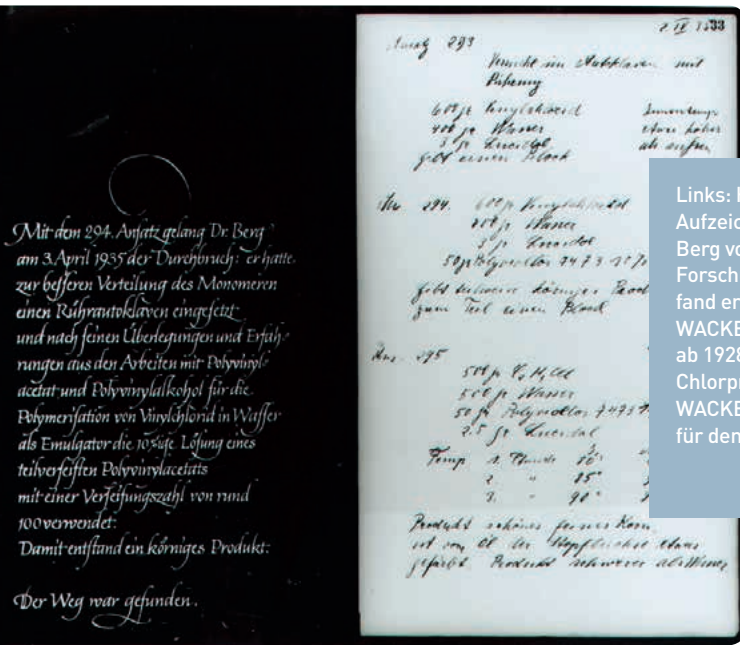 Mit dem 294. Anſatz gelang Dr. Berg
am 3. April 1935 der Durchbruch: er hatte
zur beſſeren Verteilung des Monomeren
einen Rührautoklaven eingeſetzt
und nach ſeinen Überlegungen und Erfah-
rungen aus den Arbeiten mit Polyvinyl-
acetat und Polyvinylalkohol für die
Polymeriſation von Vinylchlorid in Waſſer
als Emulgator die 10%ige Löſung eines
teilverſeiften Polyvinylacetats
mit einer Verſeifungszahl von rund
100 verwendet:
Damit entſtand ein körniges Produkt:
Der Weg war gefunden.
33
Ansatz 293
Versuche im Autoklaven mit
Rührung
600 gr Vinylchlorid
400 gr Wasser etwas höher
3 gr Lucidol
gibt einen Block
294. 600 gr Vinylchlorid
gr Wasser
3 gr Lucidol
50 gr 7473 10%
gibt körniges
zum Teil einen Block
Ans. 295
500 gr
500 gr Wasser
50 gr 7473
2.5 gr Lucidol
Temp 1. Stunde 80°
2. " 85°
3. " 90°
Produkt schönes feines Korn
ist von Öl der Stopfbüchse etwas
gefärbt. Produkt schwerer als Wasser
Links:
Aufzeic
Berg vo
Forsch
fand er
WACKE
ab 1928
Chlorp
WACKE
für den